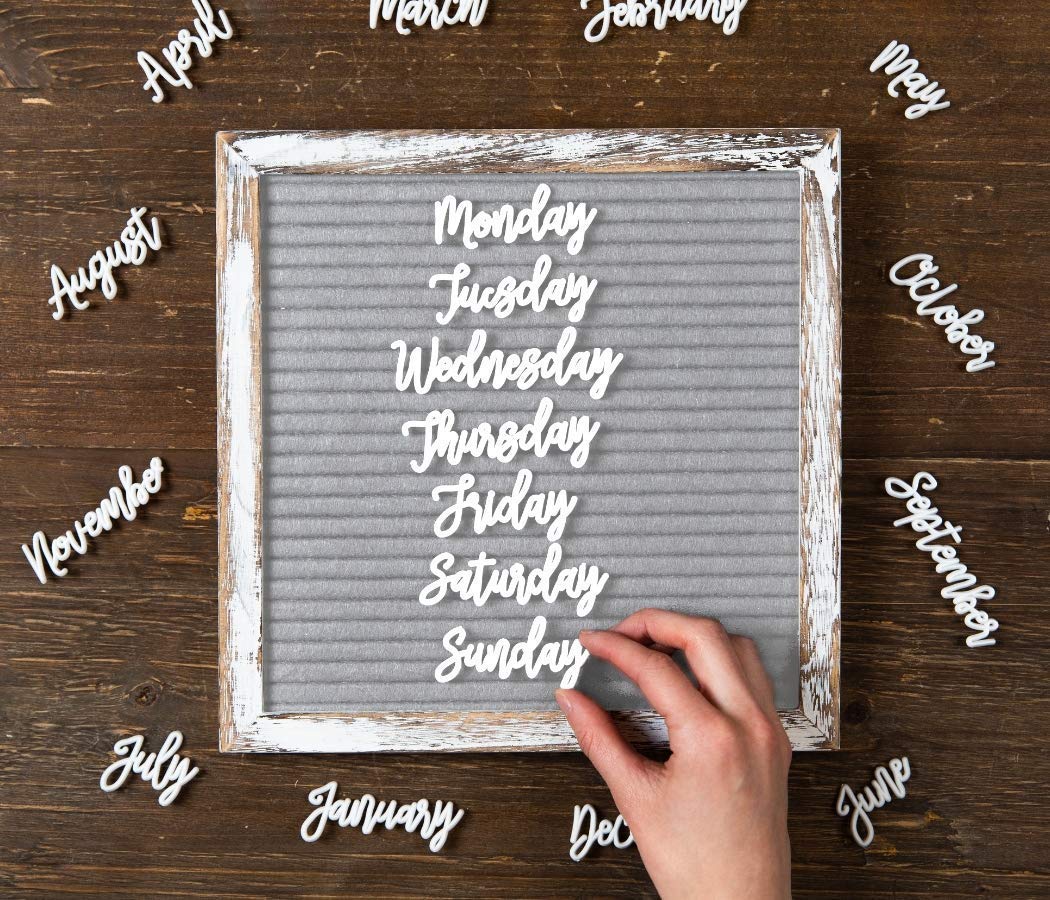 April
March
February
May
Monday
August
Tuesday
October
Wednesday
Thursday
November
Friday
September
Saturday
Sunday
July
January
Dec
June